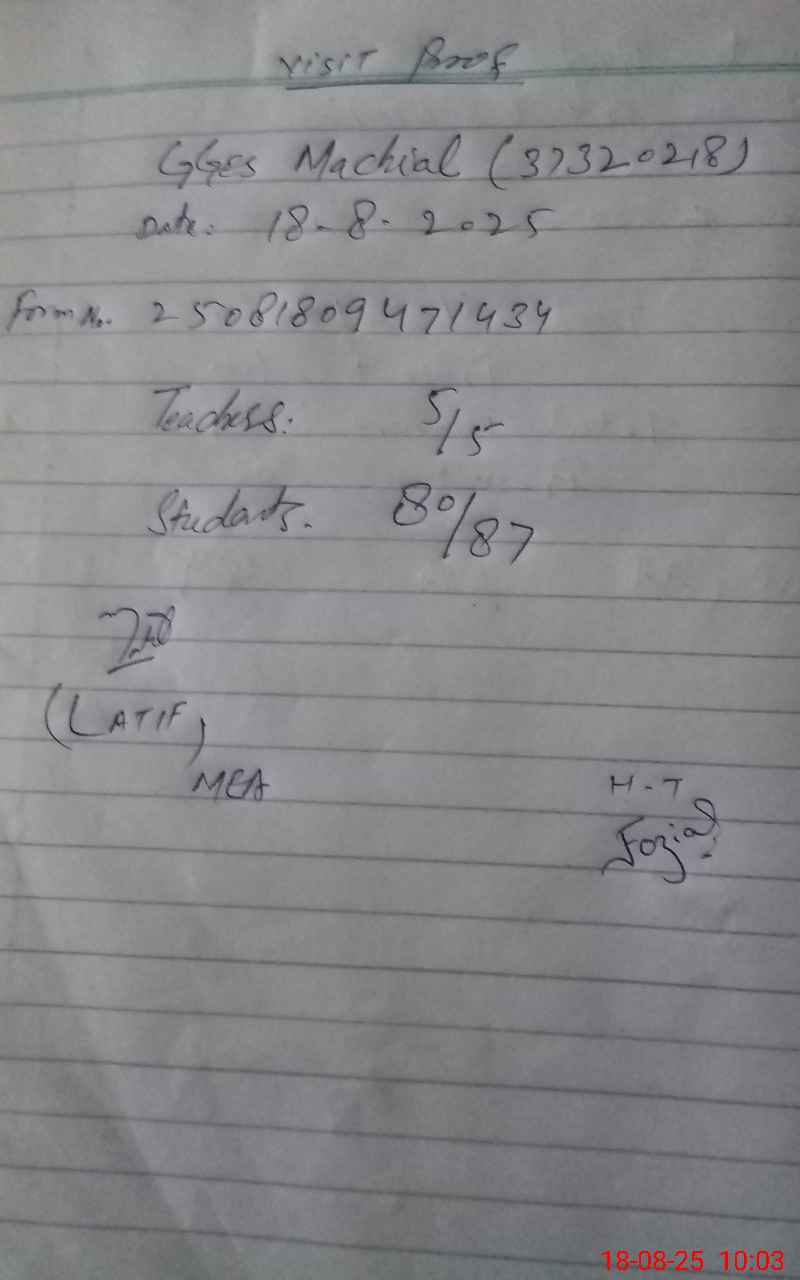 Visit Proof
GGES Machial (37320218)
Date: 18-8-2025
Form No. 25081809471434
Teachers: 5/5
Students. 80/87
(LATIF)
MEA
H-T
Fozia
18-08-25 10:03